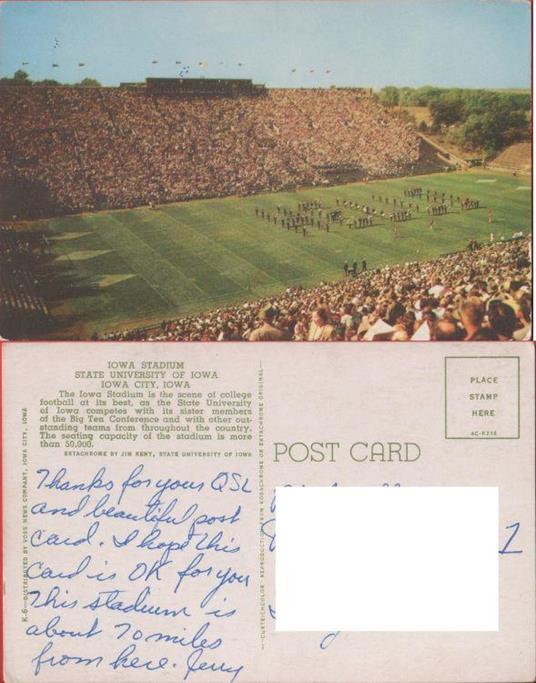 IOWA STADIUM
STATE UNIVERSITY OF IOWA
IOWA CITY, IOWA
The Iowa Stadium is the scene of college
football at its best, as the State University
of Iowa competes with its sister members
of the Big Ten Conference and with other out-
standing teams from throughout the country.
The seating capacity of the stadium is more
than 50,000.
EKTACHROME BY JIM KENT, STATE UNIVERSITY OF IOWA
K-6—DISTRIBUTED BY VOSS NEWS COMPANY, IOWA CITY, IOWA
Thanks for your QSL
and beautiful post
card. I hope this
card is OK for you
This stadium is
about 70 miles
from here. Jerry
—CURTEICHCOLOR REPRODUCTION FROM KODACHROME OR EKTACHROME ORIGINAL—
POST CARD
PLACE
STAMP
HERE
1